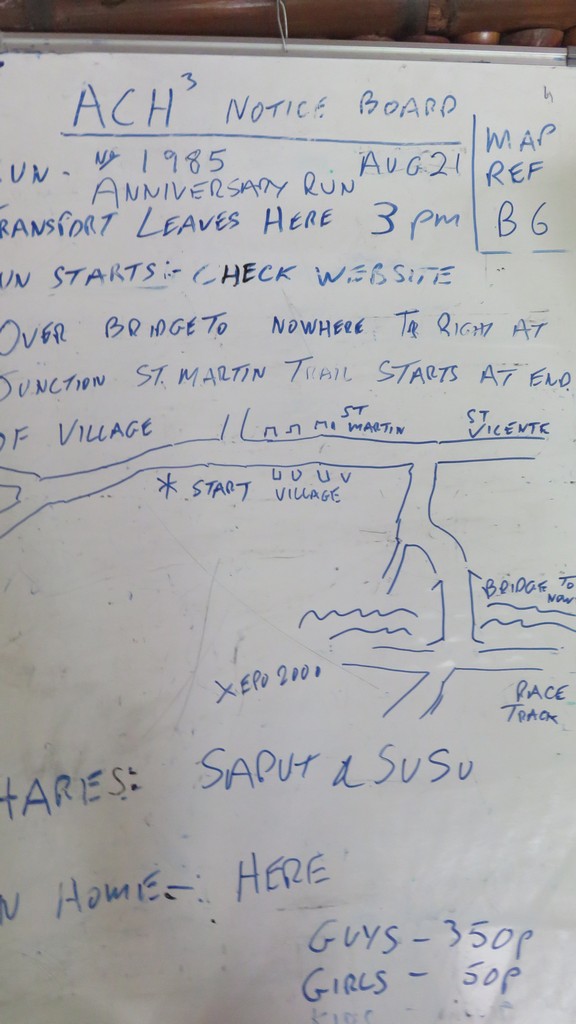 ACH³ NOTICE BOARD
UN - Nº 1985 AUG 21
ANNIVERSARY RUN
MAP
REF
B6
RANSPORT LEAVES HERE 3 pm
UN STARTS:- CHECK WEBSITE
OVER BRIDGE TO NOWHERE TO RIGHT AT
JUNCTION ST. MARTIN TRAIL STARTS AT END
OF VILLAGE
ST
MARTIN
ST
VICENTE
* START VILLAGE
BRIDGE TO
NOW
X EPO 2000
RACE
TRACK
HARES: SAPUT & SUSU
N HOME-: HERE
GUYS - 350P
GIRLS - 50P
KIDS